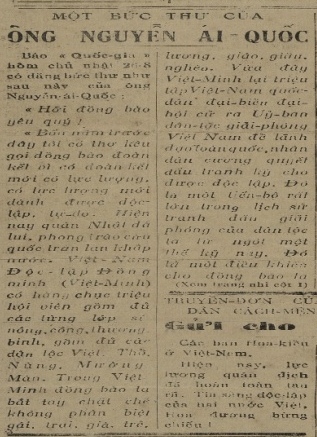 MỘT BỨC THƯ CỦA
ÔNG NGUYỄN ÁI-QUỐC
Báo « Quốc-gia »
hôm chủ nhật 26-8
có đăng bức thư như
sau này của ông
Nguyễn-ái-Quốc :
« Hỡi đồng bào
yêu quý !
« Bốn năm trước
đây tôi có thư kêu
gọi đồng bào đoàn
kết ời có đoàn kết
mới có lực lượng,
có lực lượng mới
dành được độc-
lập, tự-do. Hiện
nay quân Nhật đã
lui, phong trào cứu
quốc tràn lan khắp
nước. Việt-Nam
Độc-lập Đồng
minh (Việt-Minh)
có hàng chục triệu
hội viên gồm đủ
các từng lớp sĩ
nông, công, thương
binh, gồm đủ các
dân tộc Việt, Thổ,
Nùng, Mường
Mán. Trong Việt
Minh đồng bào ta
bắt tay chặt chẽ
không phân biệt
gái, trai, già, trẻ,
lương, giáo, giàu,
nghèo. Vừa đây
Việt-Minh lại triệu
tập Việt-Nam quốc-
dân đại-biểu đại-
hội cử ra Uỷ-ban
dân-tộc giải-phóng
Việt Nam để lãnh
đạo toàn quốc, nhân
dân cương quyết
đấu tranh kỳ cho
được độc lập. Đó
là một tiến-bộ rất
lớn trong lịch sử
tranh đấu giải
phóng của dân tộc
ta từ ngót một
thế kỷ nay. Đó
là một điều khiến
cho đồng bào ta
(Xem trang sau cột 1)
TRUYỀN-ĐƠN CỦA
DÂN CÁCH-MỆN
Gửi cho
Các bạn Hoa-kiều
ở Việt-Nam.
Hiện nay, lực
lượng quân địch
đã hoàn toàn tan
rã. Tin sống độc-lập
của hai nước Việt,
Hoa đương bừng
chiếu !